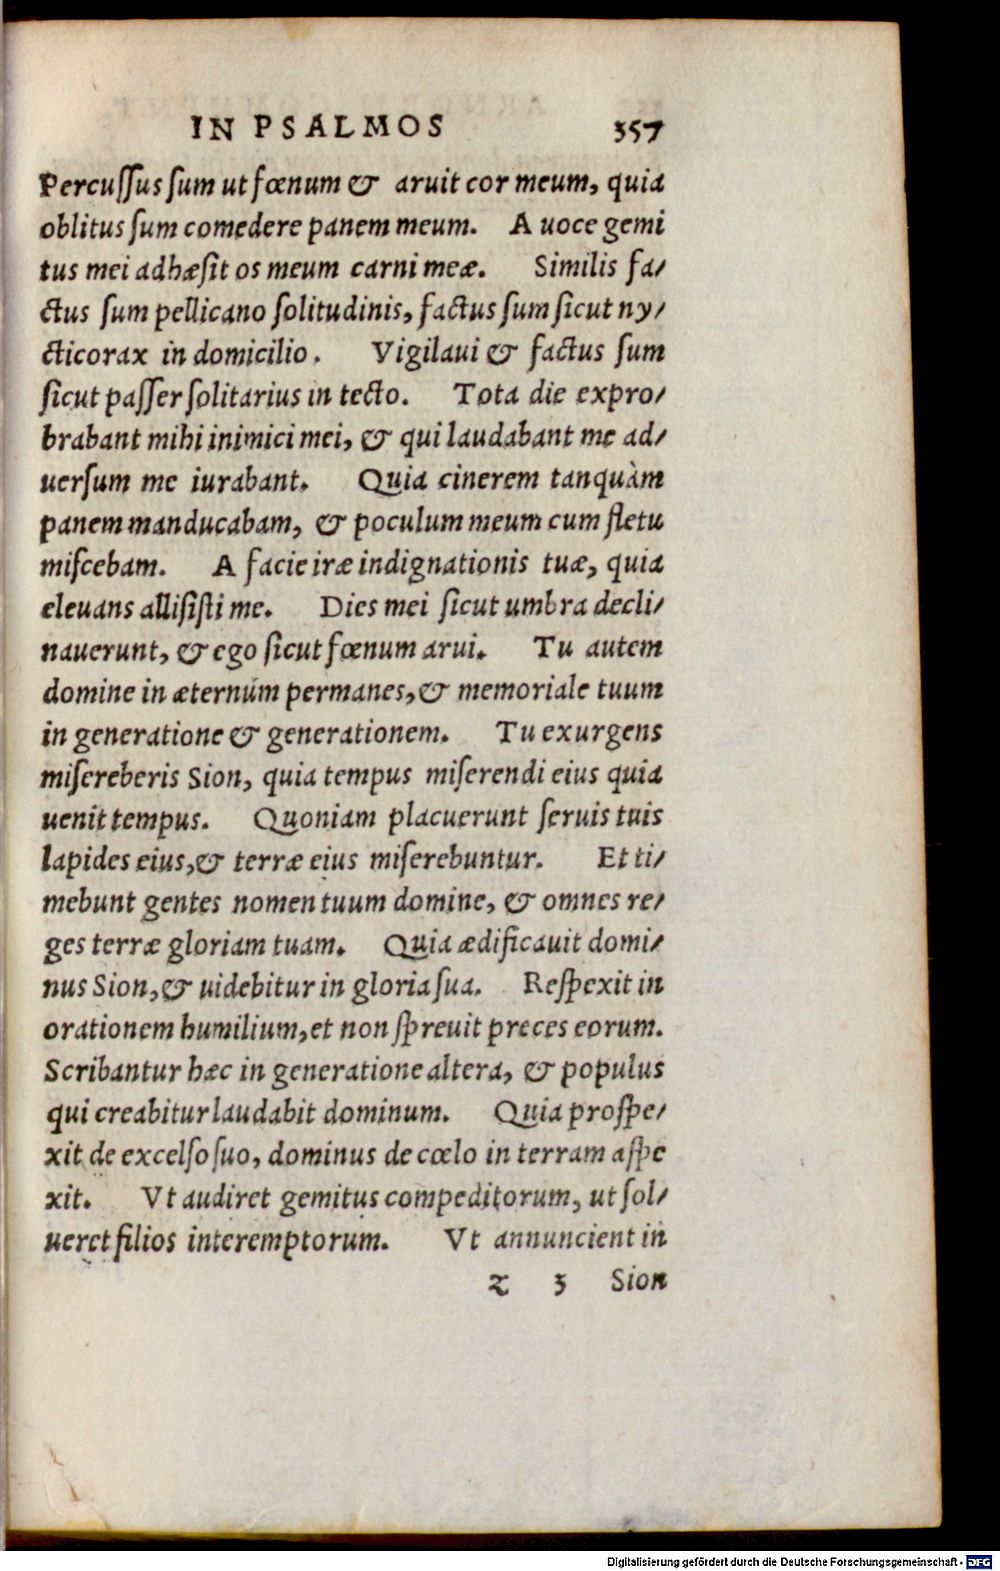 IN PSALMOS 357
Percuſſus ſum ut fœnum & aruit cor meum, quia
oblitus ſum comedere panem meum. A uoce gemi
tus mei adhæſit os meum carni meæ. Similis fa/
ctus ſum pellicano ſolitudinis, factus ſum ſicut ny/
cticorax in domicilio. Vigilaui & factus ſum
ſicut paſſer ſolitarius in tecto. Tota die expro/
brabant mihi inimici mei, & qui laudabant me ad/
uerſum me iurabant. Quia cinerem tanquàm
panem manducabam, & poculum meum cum fletu
miſcebam. A facie iræ indignationis tuæ, quia
eleuans alliſiſti me. Dies mei ſicut umbra decli/
nauerunt, & ego ſicut fœnum arui. Tu autem
domine in æternúm permanes, & memoriale tuum
in generatione & generationem. Tu exurgens
miſereberis Sion, quia tempus miſerendi eius quia
uenit tempus. Quoniam placuerunt ſeruis tuis
lapides eius, & terræ eius miſerebuntur. Et ti/
mebunt gentes nomen tuum domine, & omnes re/
ges terræ gloriam tuam. Quia ædificauit domi/
nus Sion, & uidebitur in gloria ſua. Reſpexit in
orationem humilium, et non ſpreuit preces eorum.
Scribantur hæc in generatione altera, & populus
qui creabitur laudabit dominum. Quia proſpe/
xit de excelſo ſuo, dominus de cœlo in terram aſpe
xit. Vt audiret gemitus compeditorum, ut ſol/
ueret filios interemptorum. Vt annuncient in
z 3 Sion
Digitalisierung gefördert durch die Deutsche Forschungsgemeinschaft - DFG